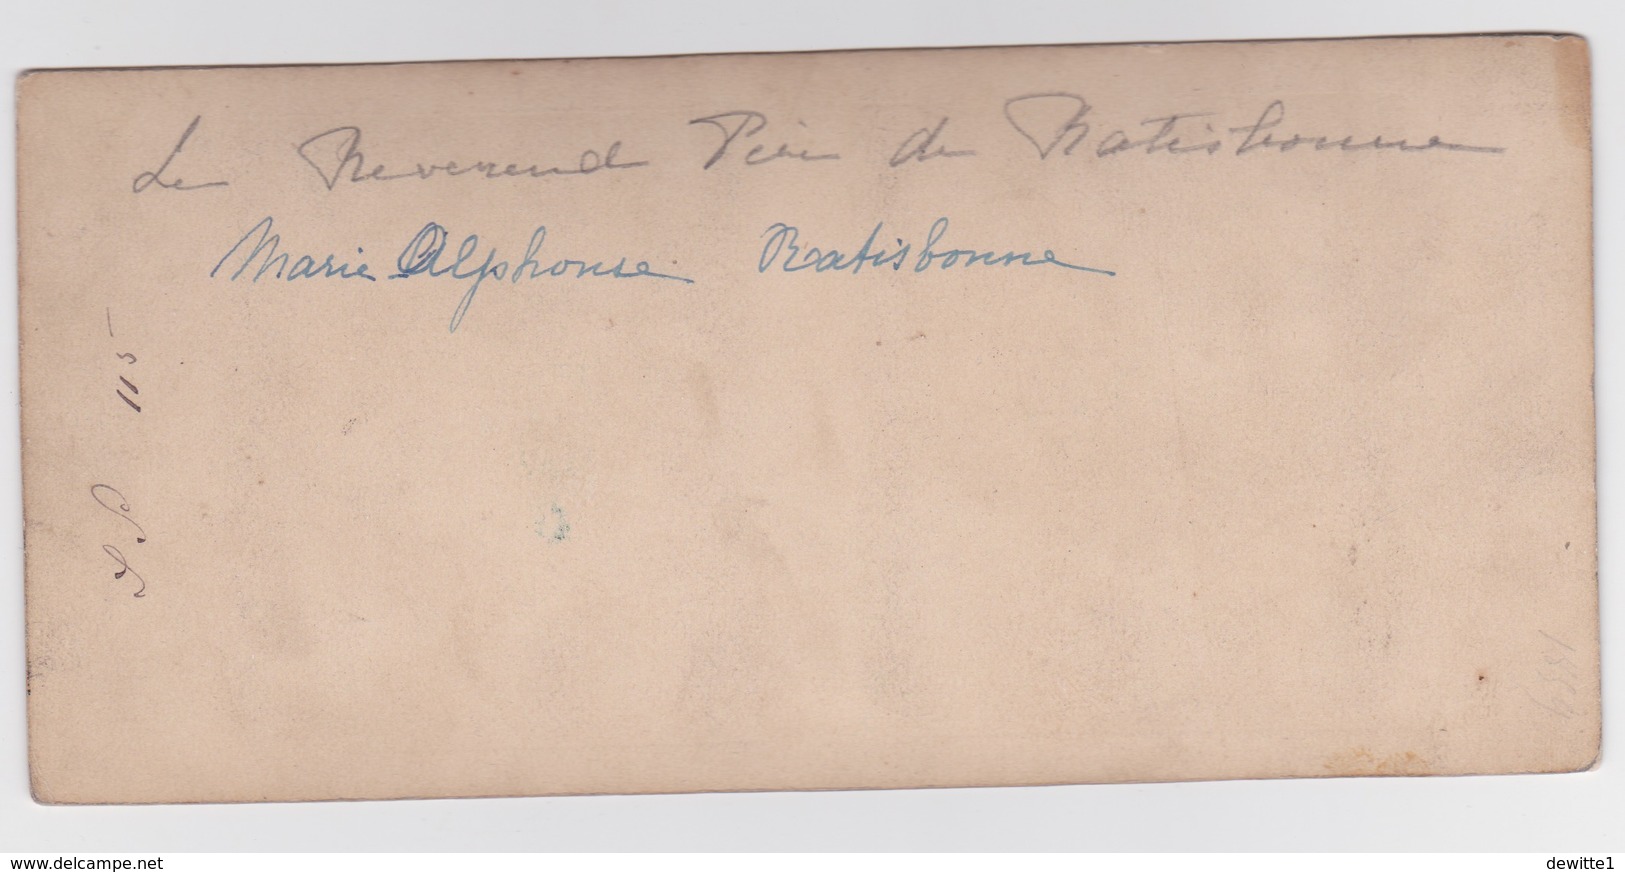 Le Reverend Père de Ratisbonne
Marie Alphonse Ratisbonne
115
www.delcampe.net
dewitte1